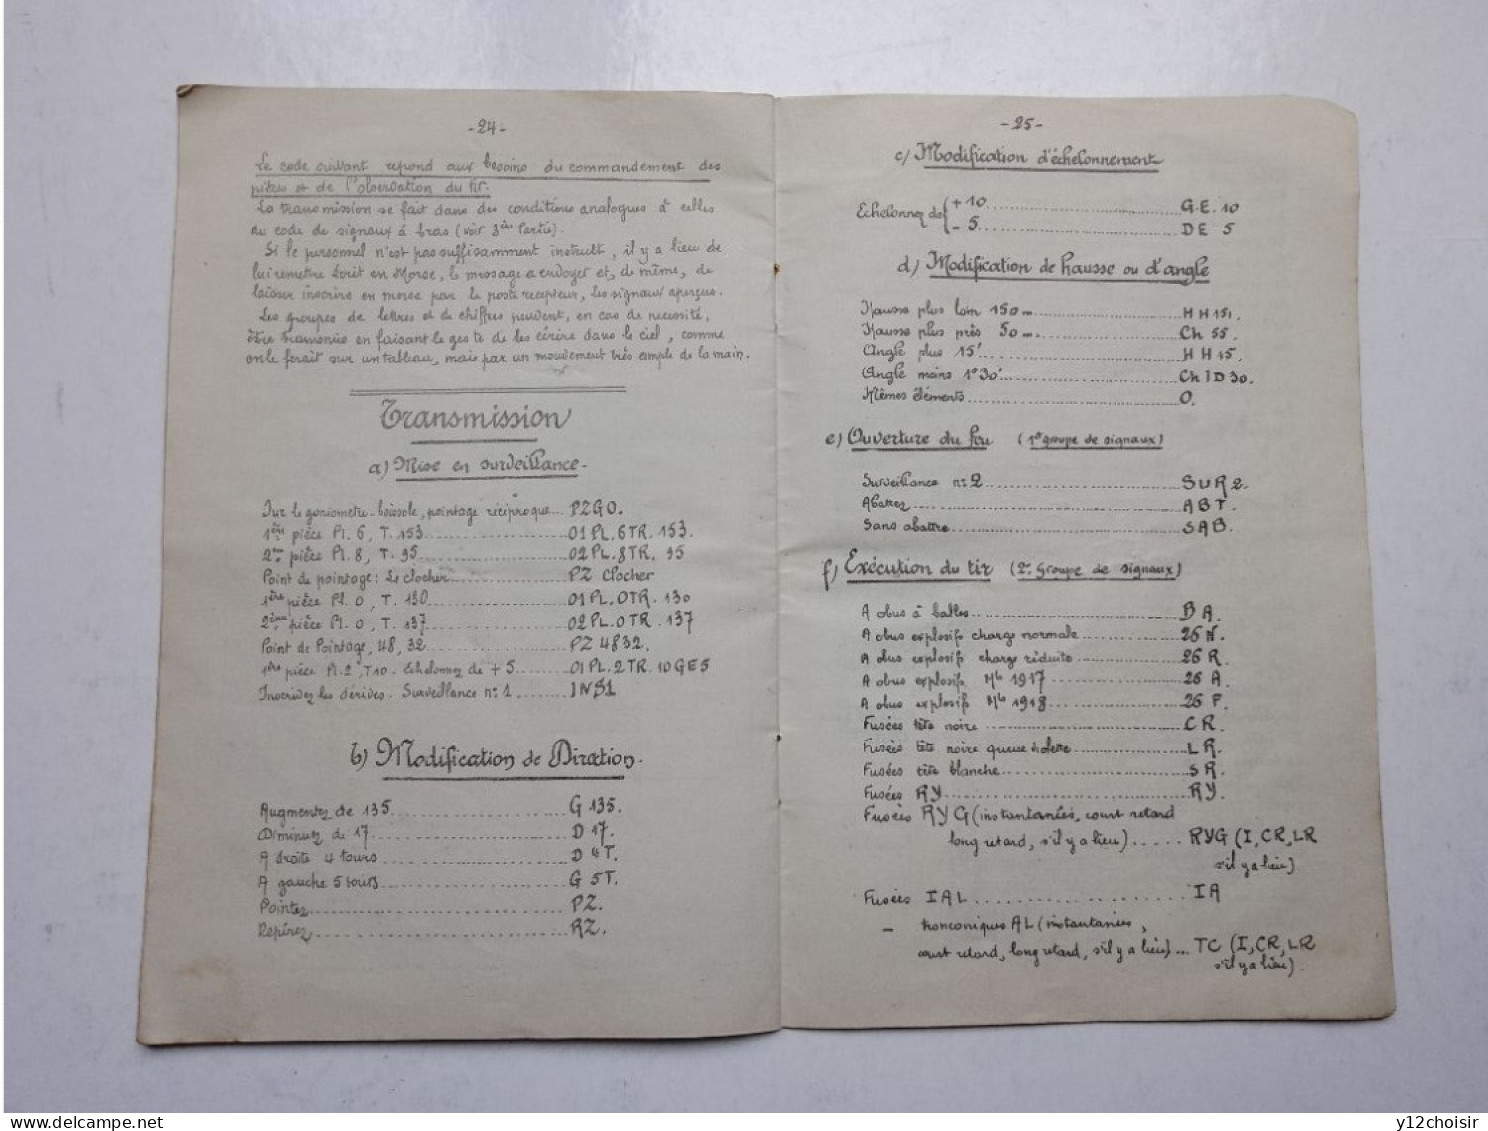 -24-
Le code suivant repond aux besoins du commandement des
pièces et de l'observation du tir.
La transmission se fait dans des conditions analogues à celles
du code de signaux à bras (voir 3ème Partie).
Si le personnel n'est pas suffisamment instruit, il y a lieu de
lui remettre écrit en Morse, le message a envoyer et, de même, de
laisser inscrire en morse par le poste recepteur, les signaux aperçus.
Les groupes de lettres et de chiffres peuvent, en cas de necessité,
être transmis en faisant le geste de les écrire dans le ciel, comme
on le ferait sur un tableau, mais par un mouvement très ample de la main.
Transmission
a) Mise en surveillance.
Sur le goniomètre-boussole, pointage réciproque... PZGO.
1ère pièce Pl. 6, T. 153...01 PL. 6TR. 153.
2ème pièce Pl. 8, T. 95...02 PL. 8TR. 95
Point de pointage: Le clocher...PZ Clocher
1ère pièce Pl. 0, T. 130...01 PL. 0TR. 130
2ème pièce Pl. 0, T. 137...02 PL. 0TR. 137
Point de Pointage, 48, 32...PZ 4832.
1ère pièce Pl. 2, T10. Echelonnez de +5...01 PL. 2TR. 10GE5
Inscrivez les dérives. Surveillance n°1...INS1
b) Modification de Direction.
Augmentez de 135...G 135.
Diminuez de 17...D 17.
A droite 4 tours...D 4T.
A gauche 5 tours...G 5T.
Pointez...PZ.
Repérez...RZ.
-25-
c/ Modification d'échelonnement
Echelonnez de { +10...G.E. 10
- 5...DE 5
d) Modification de hausse ou d'angle
Hausse plus loin 150m...HH 151.
Hausse plus près 50m...Ch 55.
Angle plus 15'...HH 15.
Angle moins 1°30'...Ch 1D 30.
Mêmes éléments...O.
e) Ouverture du feu (1er groupe de signaux)
Surveillance n°2...SUR 2.
Abattez...ABT.
Sans abattre...SAB.
f) Exécution du tir (2e Groupe de signaux)
A obus à balles...BA.
A obus explosifs charge normale...26 N.
A obus explosifs charge réduite...26 R.
A obus explosifs Mle 1917...26 A.
A obus explosifs Mle 1918...26 F.
Fusées tête noire...CR.
Fusées tête noire queue violette...LR.
Fusées tête blanche...SR.
Fusées RY...RY.
Fusées RYG (instantanées, court retard
long retard, s'il y a lieu).....RYG (I, CR, LR
s'il y a lieu)
Fusées IAL...IA
- tronconiques AL (instantanées,
court retard, long retard, s'il y a lieu)...TC (I, CR, LR
s'il y a lieu).
delcampe.net
y12choisir